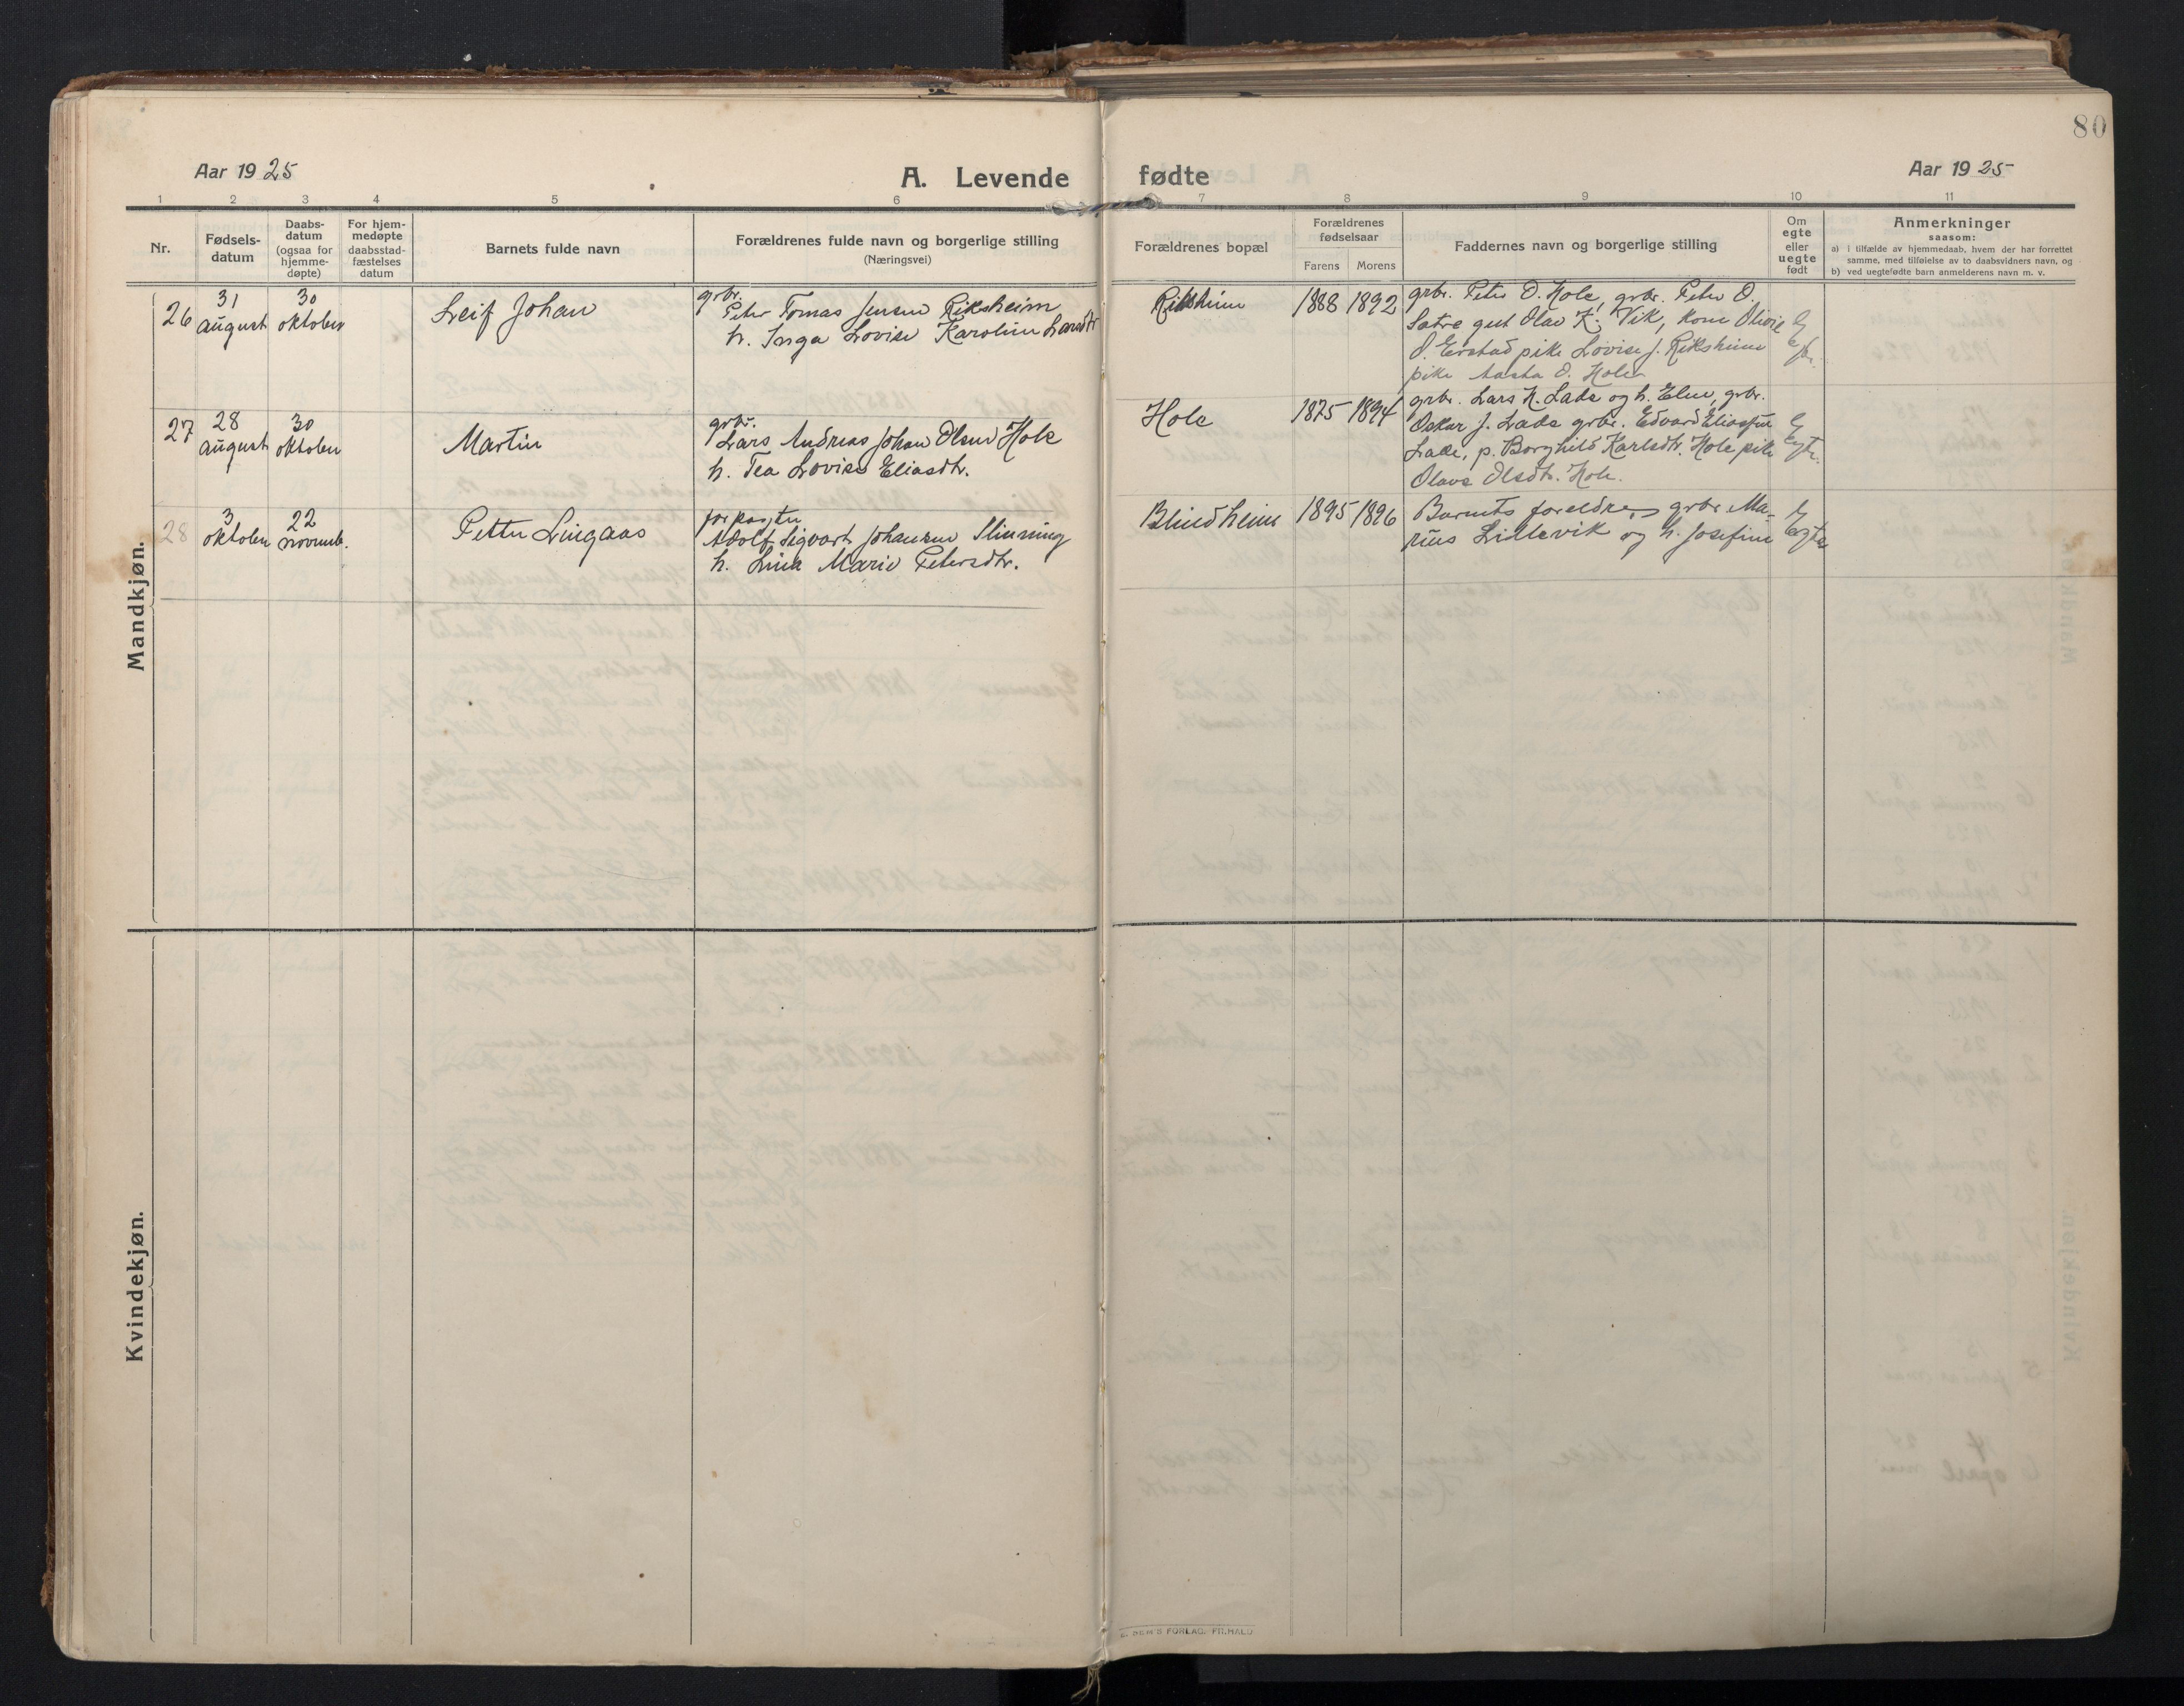 80
Aar 1925
A. Levende fødte
Aar 1925
1 2 3 4 5 6 7 8 9 10 11
Nr.
Fødsels-
datum
Daabs-
datum
(ogsaa for
hjemme-
døpte)
For hjem-
medøpte
daabsstad-
fæstelses
datum
Barnets fulde navn
Forældrenes fulde navn og borgerlige stilling
(Næringsvei)
Forældrenes bopæl
Forældrenes
fødselsaar
Farens Morens
Faddernes navn og borgerlige stilling
Om
egte
eller
uegte
født
Anmerkninger
saasom:
a) i tilfælde av hjemmedaab, hvem der har forrettet
samme, med tilføielse av to daabsvidners navn, og
b) ved uegtefødte barn anmelderens navn m. v.
Mandkjøn.
26
31
august
30
oktober
Leif Johan
grbr.
Peter Tomas Jensen Riksheim
h. Inga Lovise Karoline Larsdtr
Riksheim
1888 1892
grbr. Peter O. Hole, grbr. Peter O.
Satre gut Olav K. Vik, kone Olivie
O. Erstad pike Lovise J. Riksheim
pike Aasta O. Hole
27
28
august
30
oktober
Martin
grbr.
Lars Andreas Johan Olsen Hole
h. Tea Lovise Eliasdtr.
Hole
1875 1894
grbr. Lars N. Lade og h. Eline, grbr.
Oskar J. Lade grbr. Edvard Eliassen
Lade, p. Borghild Karlsdtr. Hole pike
Olava Olsdtr. Hole.
28
3
oktober
22
novemb.
Petter Lingaas
forpagter
Adolf Sigvart Johansen Slinning
h. Lina Marie Petersdtr.
Blindheim
1895 1896
Barnets foreldre, grbr. Ma-
rius Lillevik og h. Josefine
Egte
Kvindekjøn.
E. SEM'S FORLAG. FR.HALD